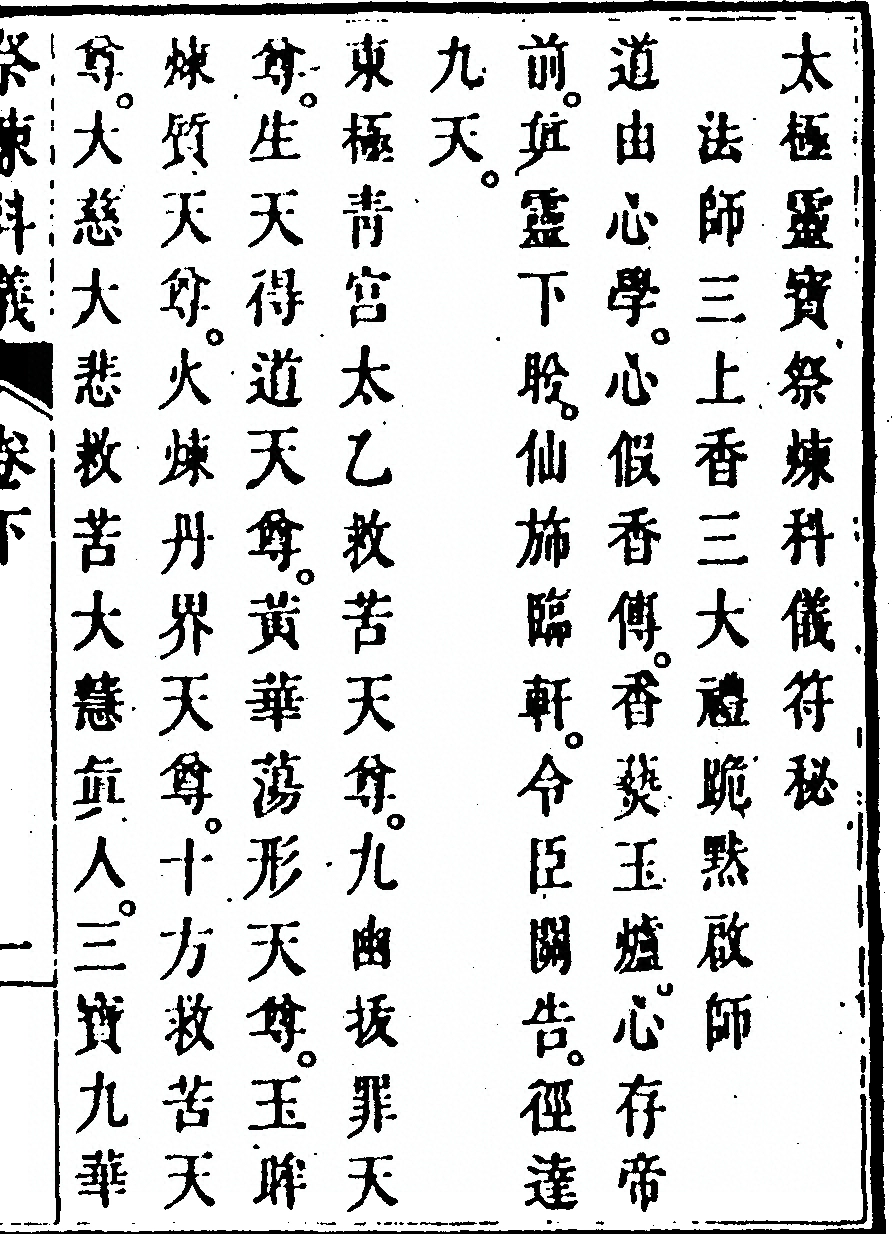 太極靈寶祭煉科儀符秘
法師三上香三大禮跪黙啟師
道由心學。心假香傳。香爇玉爐。心存帝
前。眞靈下盻。仙旆臨軒。令臣關告。徑達
九天。
東極青宫太乙救苦天尊。九幽拔罪天
尊。生天得道天尊。黃華蕩形天尊。玉眸
煉質天尊。火煉丹界天尊。十方救苦天
尊。大慈大悲救苦大慧眞人。三寶九華
祭煉科儀 卷下 一